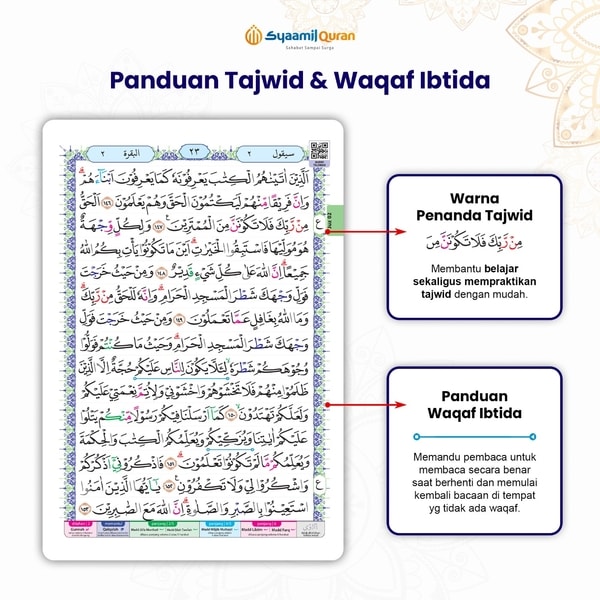 Syaamil Quran
Sahabat Sampai Surga
Panduan Tajwid & Waqaf Ibtida
البقرة ٢
٢٣
سيقول ٢
اَلَّذِيْنَ اٰتَيْنٰهُمُ الْكِتٰبَ يَعْرِفُوْنَهٗ كَمَا يَعْرِفُوْنَ اَبْنَاۤءَهُمْۗ
وَاِنَّ فَرِيْقًا مِّنْهُمْ لَيَكْتُمُوْنَ الْحَقَّ وَهُمْ يَعْلَمُوْنَ ١٤٦ اَلْحَقُّ
مِنْ رَّبِّكَ فَلَا تَكُوْنَنَّ مِنَ الْمُمْتَرِيْنَ ١٤٧ وَلِكُلٍّ وِّجْهَةٌ
هُوَ مُوَلِّيْهَا فَاسْتَبِقُوا الْخَيْرٰتِۗ اَيْنَ مَا تَكُوْنُوْا يَأْتِ بِكُمُ اللّٰهُ
جَمِيْعًاۗ اِنَّ اللّٰهَ عَلٰى كُلِّ شَيْءٍ قَدِيْرٌ ١٤٨ وَمِنْ حَيْثُ خَرَجْتَ
فَوَلِّ وَجْهَكَ شَطْرَ الْمَسْجِدِ الْحَرَامِۗ وَاِنَّهٗ لَلْحَقُّ مِنْ رَّبِّكَۗ
وَمَا اللّٰهُ بِغَافِلٍ عَمَّا تَعْمَلُوْنَ ١٤٩ وَمِنْ حَيْثُ خَرَجْتَ فَوَلِّ
وَجْهَكَ شَطْرَ الْمَسْجِدِ الْحَرَامِۗ وَحَيْثُ مَا كُنْتُمْ فَوَلُّوْا
وُجُوْهَكُمْ شَطْرَهٗۙ لِئَلَّا يَكُوْنَ لِلنَّاسِ عَلَيْكُمْ حُجَّةٌ اِلَّا الَّذِيْنَ
ظَلَمُوْا مِنْهُمْ فَلَا تَخْشَوْهُمْ وَاخْشَوْنِيْ وَلِاُتِمَّ نِعْمَتِيْ عَلَيْكُمْ
وَلَعَلَّكُمْ تَهْتَدُوْنَۙ ١٥٠ كَمَآ اَرْسَلْنَا فِيْكُمْ رَسُوْلًا مِّنْكُمْ يَتْلُوْا
عَلَيْكُمْ اٰيٰتِنَا وَيُزَكِّيْكُمْ وَيُعَلِّمُكُمُ الْكِتٰبَ وَالْحِكْمَةَ
وَيُعَلِّمُكُمْ مَّا لَمْ تَكُوْنُوْا تَعْلَمُوْنَۗ ١٥١ فَاذْكُرُوْنِيْٓ اَذْكُرْكُمْ
وَاشْكُرُوْا لِيْ وَلَا تَكْفُرُوْنِ ١٥٢ يٰٓاَيُّهَا الَّذِيْنَ اٰمَنُوا
اسْتَعِيْنُوْا بِالصَّبْرِ وَالصَّلٰوةِۗ اِنَّ اللّٰهَ مَعَ الصّٰبِرِيْنَ ١٥٣
Juz 02
Warna
Penanda Tajwid
مِنْ رَّبِّكَ فَلَا تَكُوْنَنَّ مِنَ
Membantu belajar
sekaligus mempraktikan
tajwid dengan mudah.
Panduan
Waqaf Ibtida
Memandu pembaca untuk
membaca secara benar
saat berhenti dan memulai
kembali bacaan di tempat
yg tidak ada waqaf.